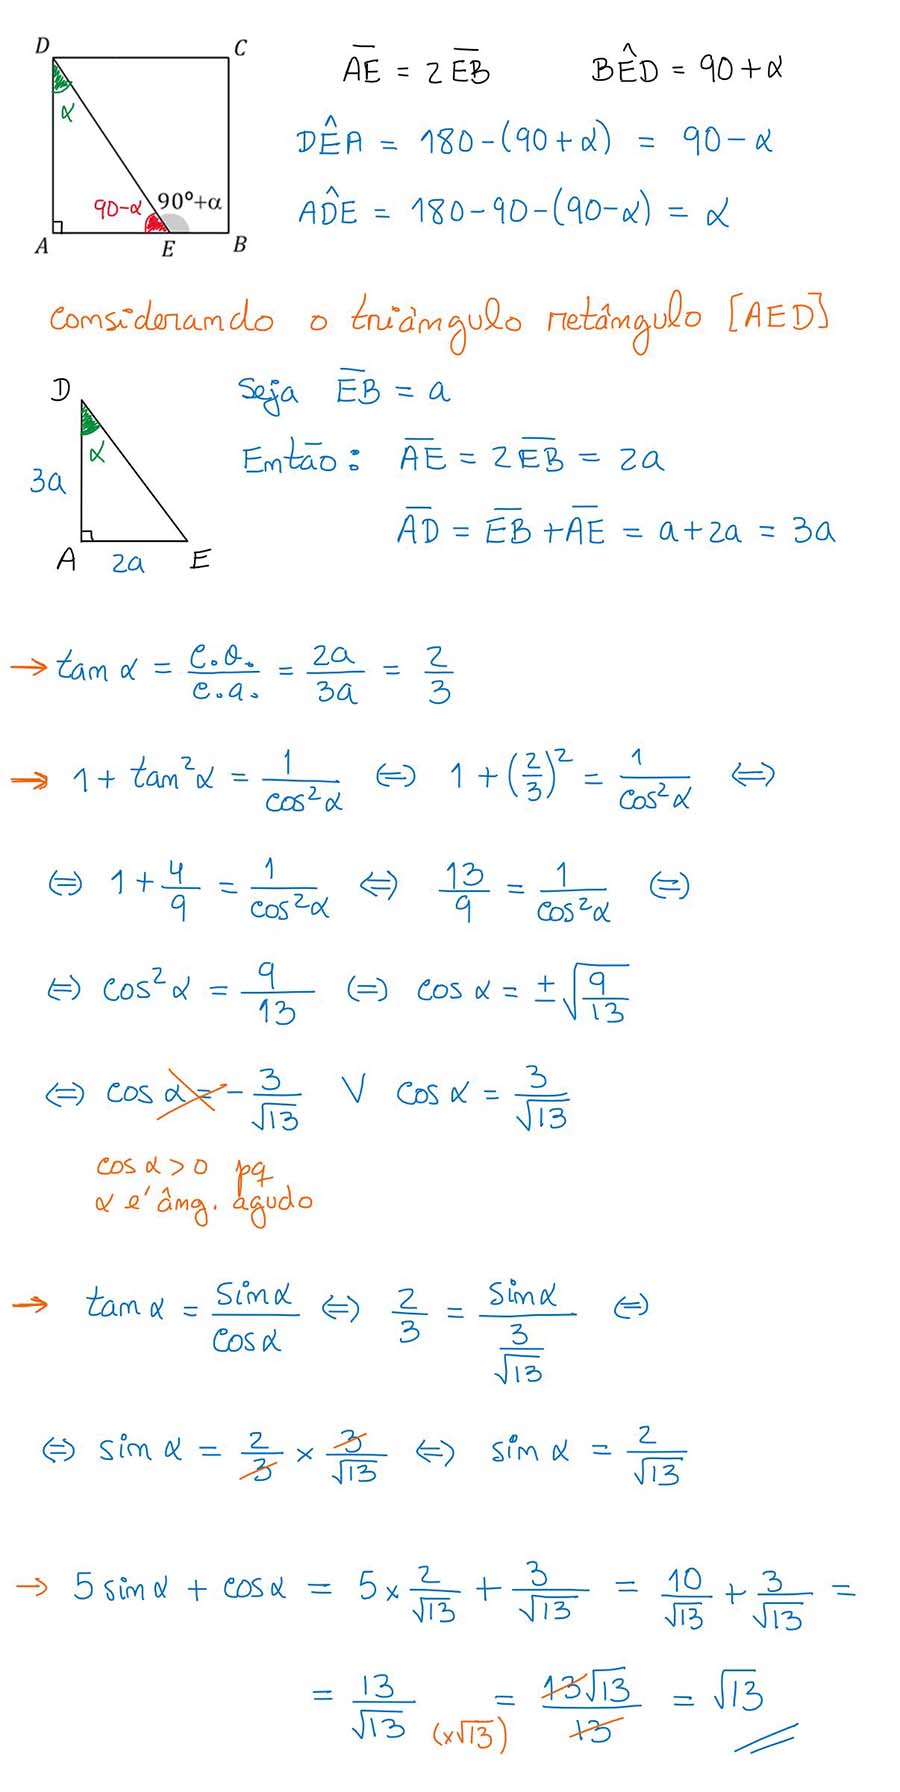 D C
A͞E = 2E͞B BÊD = 90+α
α
DÊA = 180-(90+α) = 90-α
90-α 90º+α
AD̂E = 180-90-(90-α) = α
A E B
considerando o triângulo retângulo [AED]
D Seja E͞B = a
α
Então: A͞E = 2E͞B = 2a
3a
A͞D = E͞B + A͞E = a+2a = 3a
A 2a E
→ tan α = c.o./c.a. = 2a/3a = 2/3
→ 1 + tan²α = 1/cos²α ⇔ 1 + (2/3)² = 1/cos²α ⇔
⇔ 1 + 4/9 = 1/cos²α ⇔ 13/9 = 1/cos²α ⇔
⇔ cos²α = 9/13 ⇔ cos α = ±√(9/13)
⇔ cos α = - 3/√13 V cos α = 3/√13
cos α > 0 pq
α e' âng. águdo
→ tan α = sin α/cos α ⇔ 2/3 = sin α/(3/√13) ⇔
⇔ sin α = 2/3 × 3/√13 ⇔ sin α = 2/√13
→ 5 sin α + cos α = 5 × 2/√13 + 3/√13 = 10/√13 + 3/√13 =
= 13/√13 (×√13) = 13√13/13 = √13